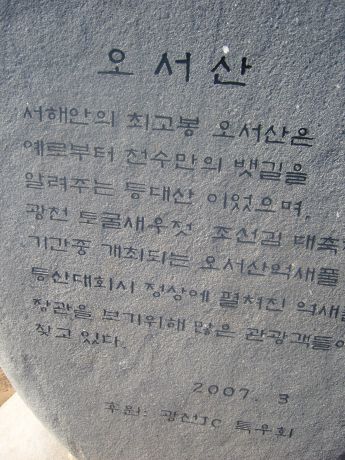 오서산
서해안의 최고봉 오서산은
예로부터 천수만의 뱃길을
알려주는 등대산 이었으며,
광천 토굴새우젓 조선김 대축
기간중 개최되는 오서산억새풀
등산대회시 정상에 펼쳐진 억새
장관을 보기위해 많은 관광객들이
찾고 있다.
2007. 3
후원: 광천JC 특우회